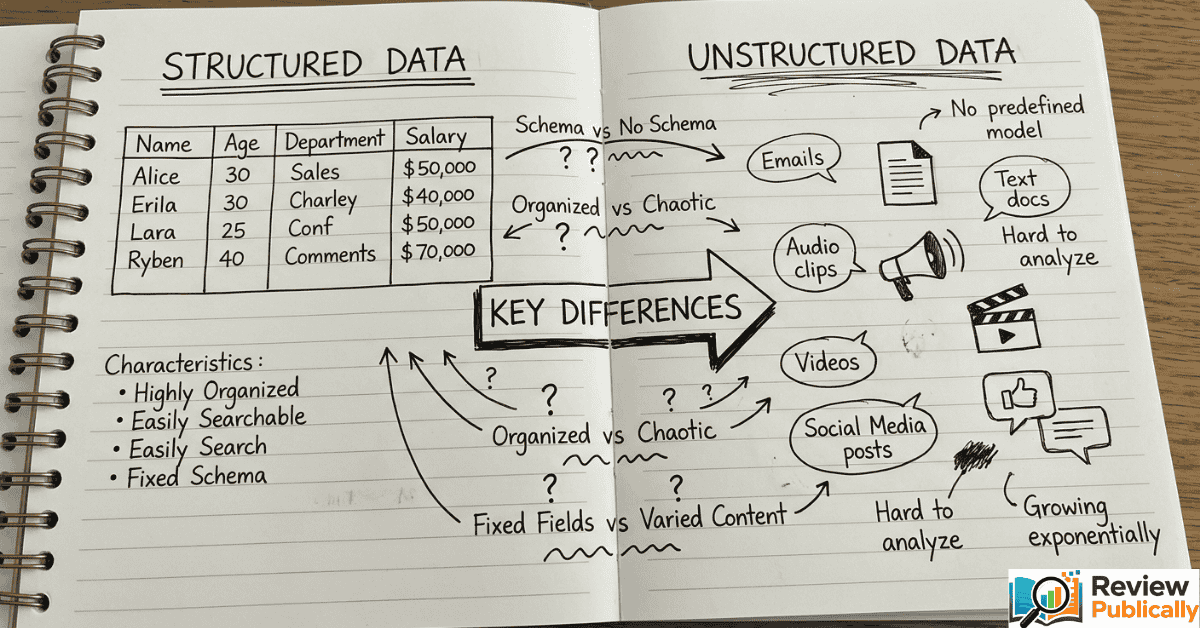 STRUCTURED DATA
Name Age Department Salary
Alice 30 Sales $50,000
Erila 30 Charley $40,000
Lara 25 Conf $50,000
Ryben 40 Comments $70,000
Characteristics:
• Highly Organized
• Easily Searchable
• Easily Search
• Fixed Schema
Schema vs No Schema
? ?
Organized vs Chaotic
?
KEY DIFFERENCES
?
? ? ?
Organized vs Chaotic
? ?
Fixed Fields vs Varied Content
UNSTRUCTURED DATA
No predefined
model
Emails
Text
docs
Hard to
analyze
Audio
clips
Videos
Social Media
posts
Hard to
analyze
Growing
exponentially
Review
Publically